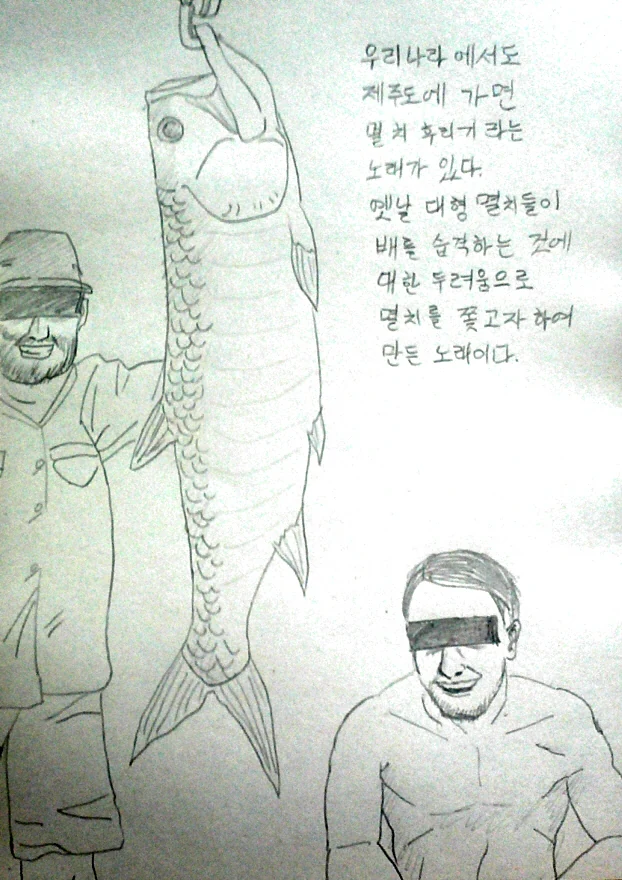 우리나라 에서도
제주도에 가면
멸치 후리기 라는
노래가 있다.
옛날 대형 멸치들이
배를 습격하는 것에
대한 두려움으로
멸치를 쫓고자 하여
만든 노래이다.